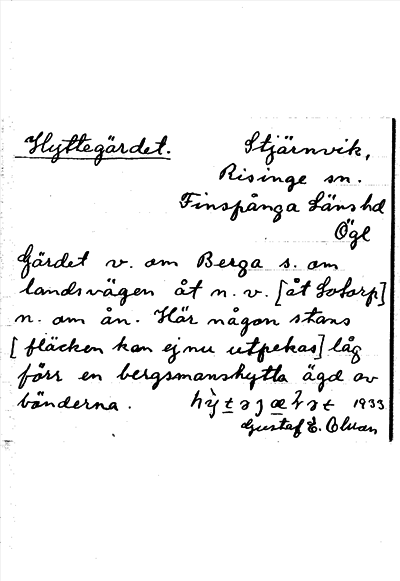 Hyttegärdet. Stjärnvik,
Risinge sn.
Finspånga Läns hd
Ögl
Gärdet v. om Berga s. om
landsvägen åt n. v. [åt Sotorp]
n. om ån. Här någon stans
[fläcken kan ej nu utpekas] låg
förr en bergsmanshytta ägd av
bönderna. 1933
Gustaf E.